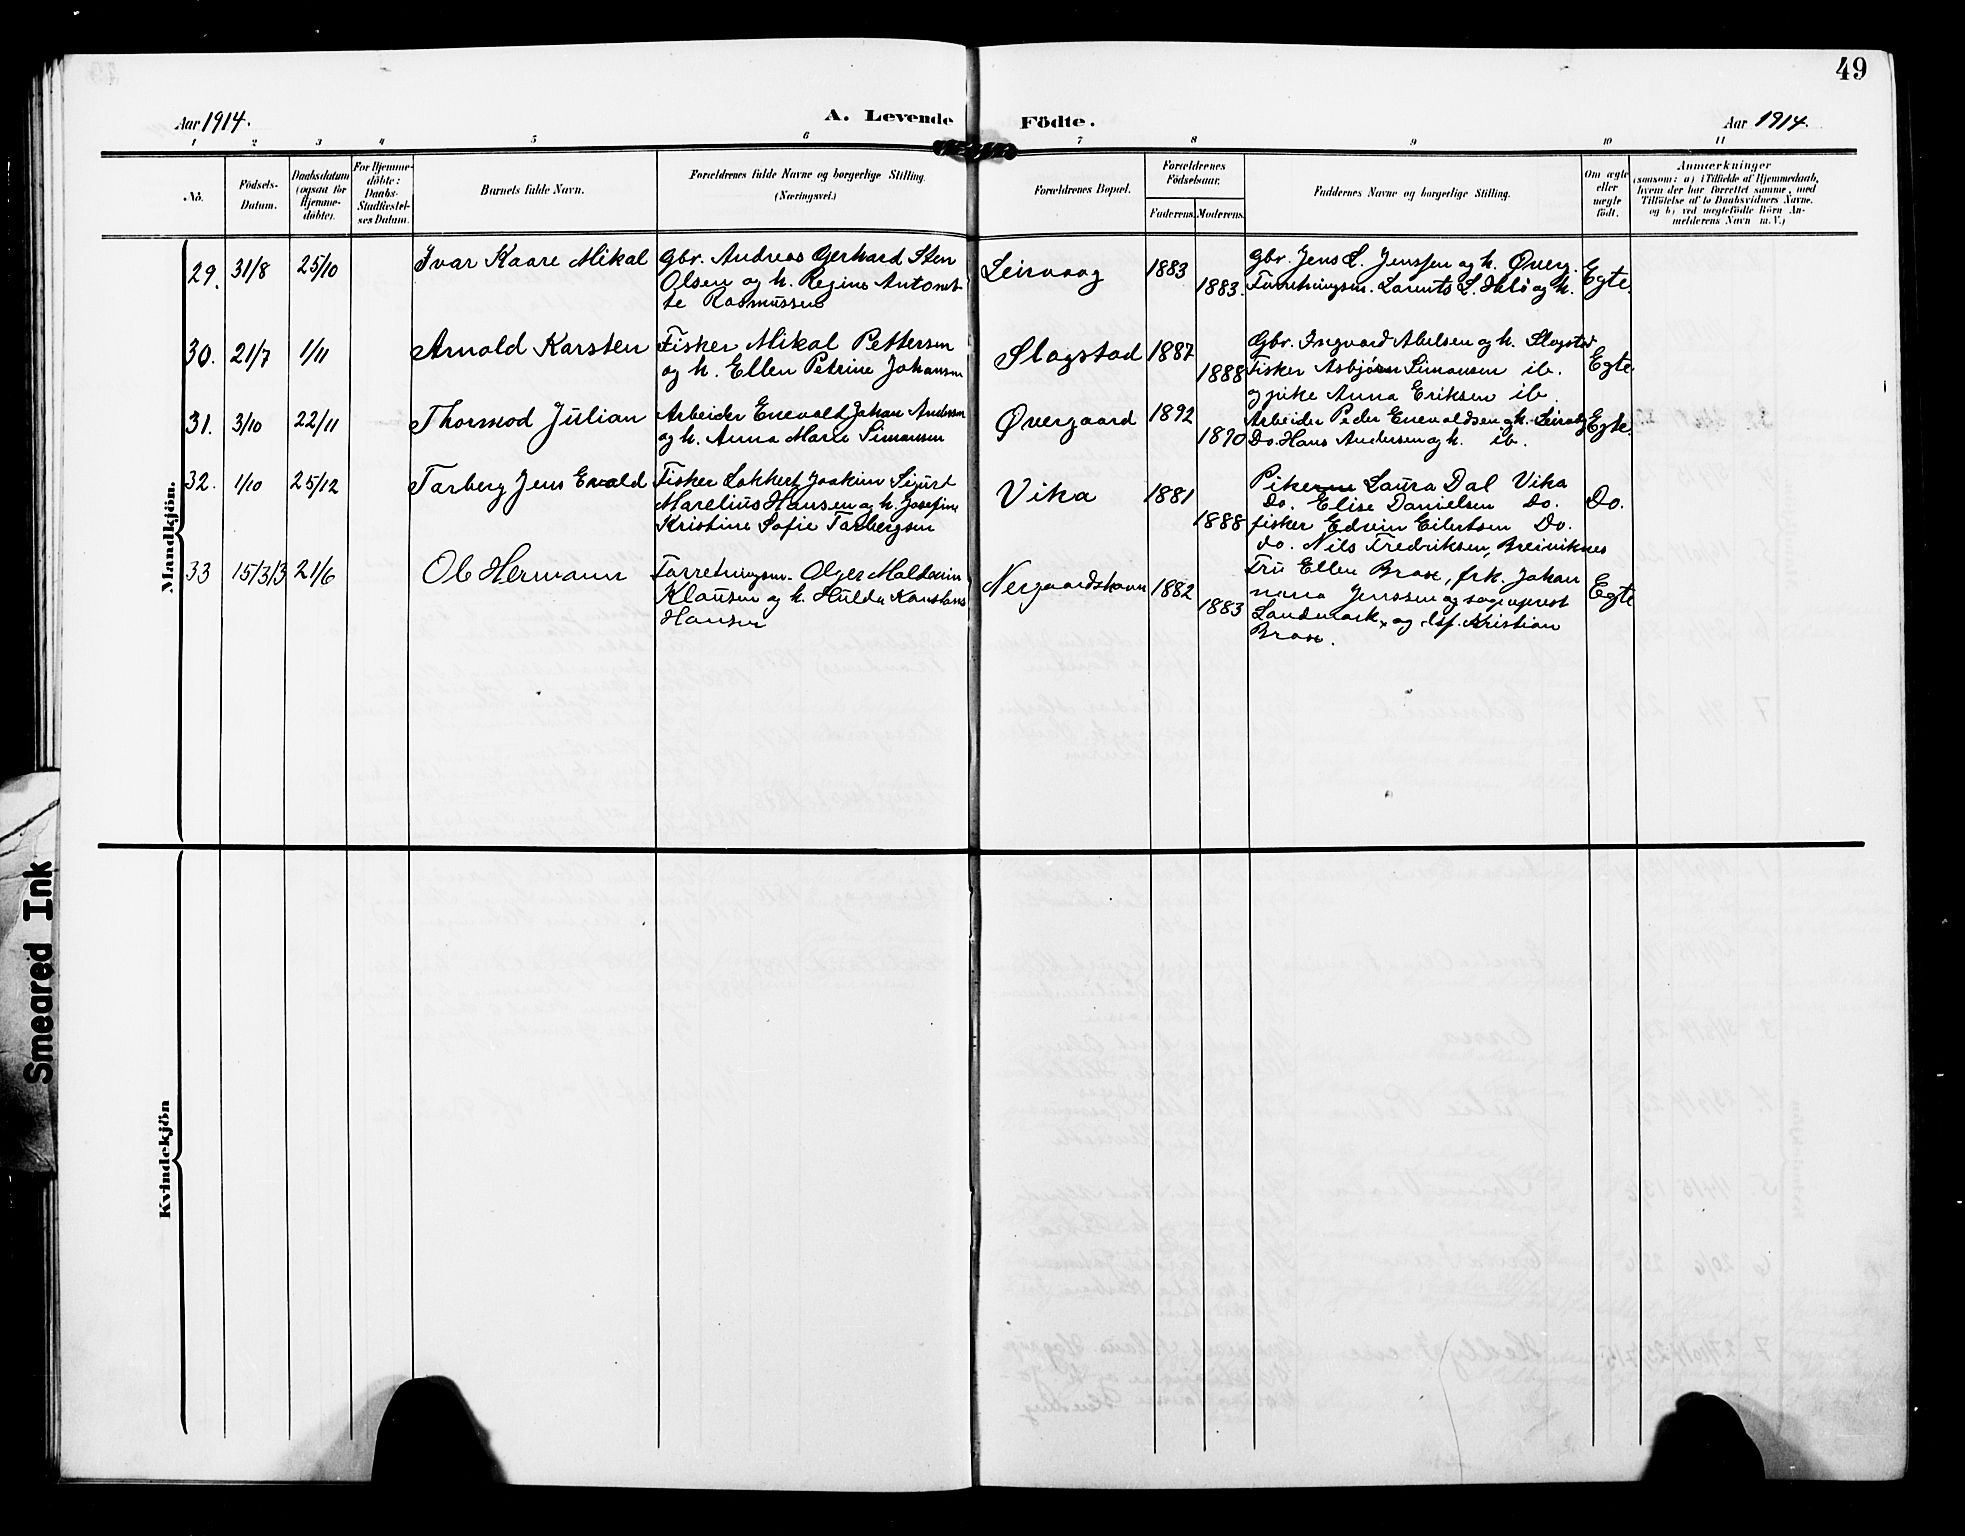 49
Aar 1914.
A. Levende Födte.
Aar 1914.
1 2 3 4 5 6 7 8 9 10 11
No.
Födsels-Datum.
Daabsdatum (ogsaa for Hjemme-döbte).
For Hjemme-döbte: Daabs-Stadfæstel-ses Datum.
Barnets fulde Navn.
Forældrenes fulde Navne og borgerlige Stilling.
(Næringsvei.)
Forældrenes Bopæl.
Forældrenes Födselsaar.
Faderens. Moderens.
Faddernes Navne og borgerlige Stilling.
Om ægte eller uægte födt.
Anmærkninger
(saasom: a) i Tilfælde af Hjemmedaab,
hvem der har forrettet samme, med
Tilföielse af to Daabsvidners Navne,
og b) ved uægtefödte Börn An-
melderens Navn m. V.)
Mandkjön.
29. 31/8 25/10 Ivar Kaare Mikal
Gbr. Andreas Gerhard Sten
Olsen og h. Regine Antonet-
te Rasmussen
Leirvaag 1883 1883.
Gbr. Jens L. Jenssen og h. Øverg.
Forretningsm. Lorents L. og h.
Egte.
30. 21/7 1/11 Arnold Karsten
Fisker Mikal Pettersen
og h. Ellen Petrine Johansen
Slagstad 1887 1888
Gbr. Ingvard Abelsen og h. Slagstad
Fisker Asbjørn Simonsen ib.
og pike Anna Eriksen ib.
Egte
31. 3/10 22/11 Thormod Julian
Arbeider Enevold Johan Andersen
og h. Anna Marie Simonsen
Øvergaard 1892 1890
Arbeider Peder Enevoldsen og h. Leirvåg
Do. Hans Andersen og h. ib.
Egte.
32. 1/10 25/12 Torberg Jens Evald
Fisker Lokkert Joakim Sigurt
Marelius Hansen og h. Josefine
Kristine Sofie Torbergsen
Vika 1881 1888
Pikerne Laura Dal Vika
Do. Elise Danielsen Do.
fisker Edvin Eilertsen Do.
do. Nils Fredriksen, Breiviknes
Do.
33 15/3/3 21/6 Ole Hermann
Forretningsm. Olger
Klausen og h. Hulda Konstanse
Hansen
Nergaardshavn 1882 1883
Fru Ellen Brox, frk. Johan
nna Jenssen og sogneprest
Landmark, og lsf. Kristian
Brox.
Egte
Kvindekjön
Smeared Ink